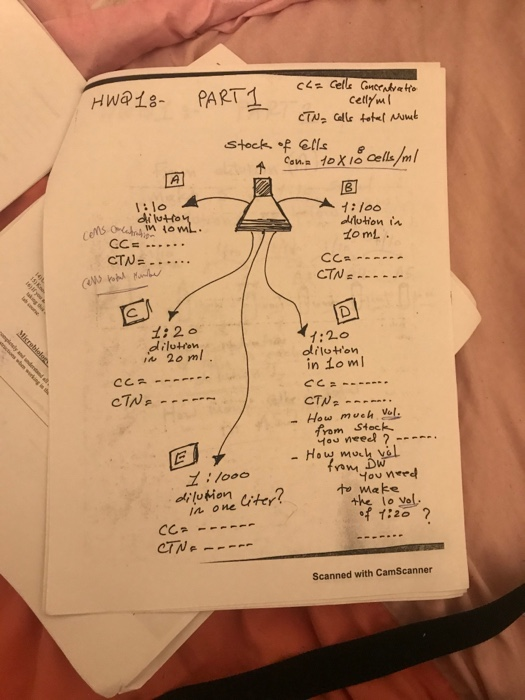 HW@18- PART1
CC= Cells Concentratio
cell/ml
CTN= Cells total Numb
Stock of Cells
Con.= 10X10⁸ Cells/ml
A
1:10
dilution
in 10mL.
Cells Concentration
CC= ......
CTN= ......
Cells total Number
B
1:100
dilution in
10mL.
CC= ------
CTN= ------
C
1:20
dilution
in 20 ml.
CC= -------
CTN= -------
D
1:20
dilution
in 10ml
CC= -------
CTN= -------
- How much Vol.
from Stock
you need? ------
- How much Vol
from DW
you need
to make
the 10 vol.
of 1:20 ?
-------
E
1:1000
dilution
in one liter?
CC= ------
CTN= ------
Scanned with CamScanner
Microbiology